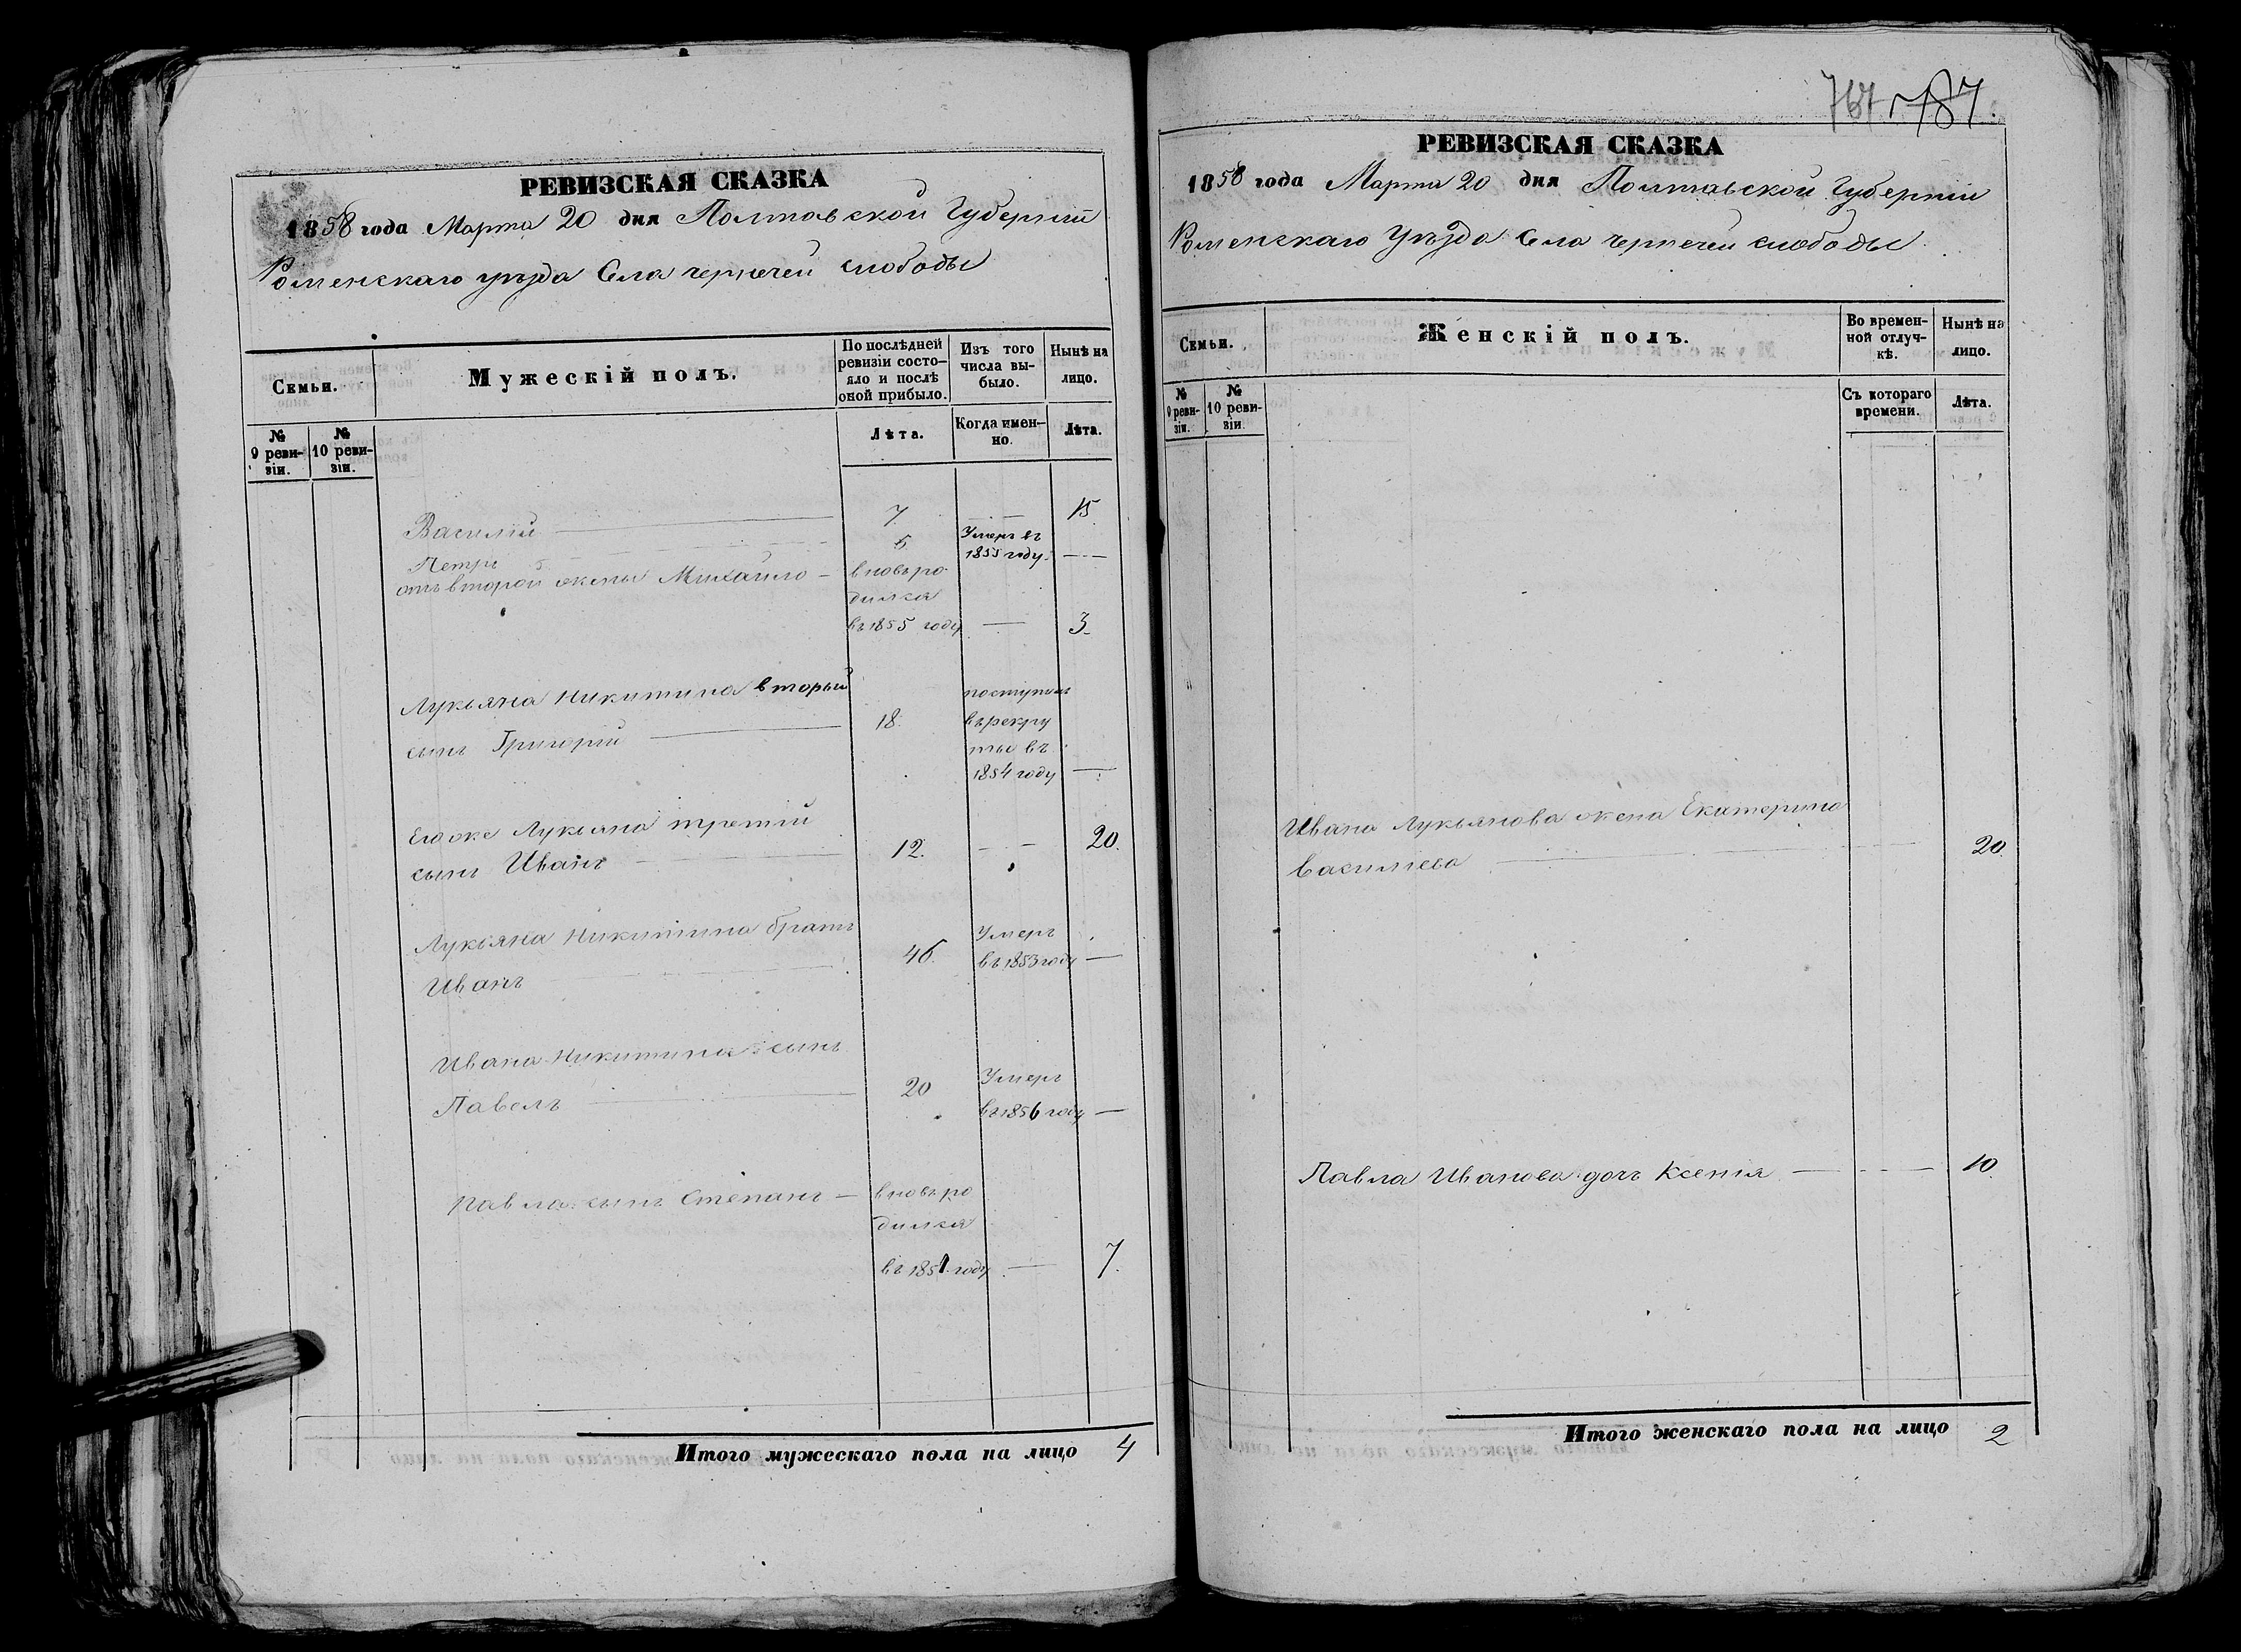 РЕВИЗСКАЯ СКАЗКА
1858 года Марта 20 дня Полтавской Губернии
Роменскаго уѣзда Села чернечей слободы
Семьи.
Мужескій полъ.
По послѣдней ревизіи состояло и послѣ оной прибыло.
Изъ того числа выбыло.
Нынѣ на лицо.
№ 9 ревизіи.
№ 10 ревизіи.
Лѣта.
Когда именно.
Лѣта.
Василій — 7 — 15.
Петръ 5 Умеръ въ 1855 году. —
отъ второй жены Михайло — вновь ро
дился
въ 1855 году — 3.
Лукьяна Никитина вторый поступилъ
сынъ Григорій — 18. въ рекру
ты въ
1854 году —
Егоже Лукьяна третій
сынъ Иванъ — 12. — 20.
Лукьяна Никитина братъ Умеръ
Иванъ — 46. въ 1853 году —
Ивана Никитина сынъ Умеръ
Павелъ — 20 въ 1856 году —
Павла сынъ Степанъ — вновь ро
дился
въ 1851 году — 7.
Итого мужескаго пола на лицо 4
787
РЕВИЗСКАЯ СКАЗКА
1858 года Марта 20 дня Полтавской Губерніи
Роменскаго Уѣзда Села чернечей слободы
Семьи.
Женскій полъ.
Во временной отлучкѣ.
Нынѣ на лицо.
№ 9 ревизіи.
№ 10 ревизіи.
Съ котораго времени.
Лѣта.
Ивана Лукьянова жена Екатерина
Васильева — 20.
Павла Иванова дочь Ксенія — 10.
Итого женскаго пола на лицо 2